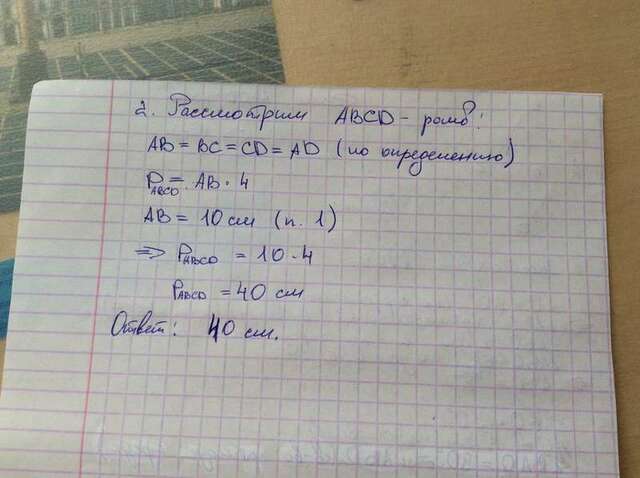 2. Рассмотрим ABCD - ромб:
AB = BC = CD = AD (по определению)
P ABCD = AB · 4
AB = 10 см (п. 1)
=> P ABCD = 10 · 4
P ABCD = 40 см
Ответ: 40 см.